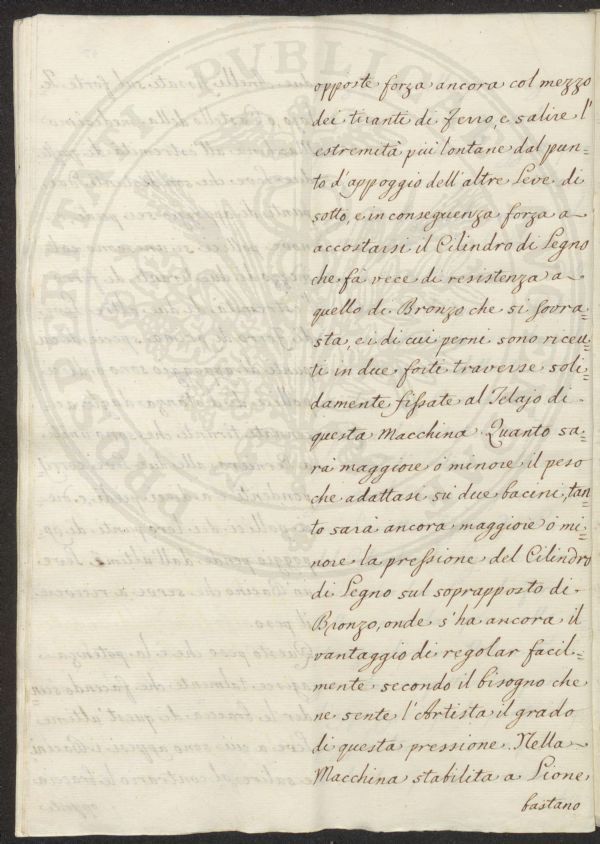 opposte forza ancora col mezzo
dei tiranti di Ferro, e salire l'
estremità più lontane dal pun=
to d'appoggio dell'altre Leve di
sotto, e in conseguenza forza a
accostarsi il Cilindro di Legno
che fà vece di resistenza a
quello di Bronzo che si sovra=
sta, e i di cui perni sono riceu=
ti in due forti traverse soli=
damente fissate al Telajo di
questa Macchina. Quanto sa=
rà maggiore ò minore il peso
che adattasi sù due bacini, tan=
to sarà ancora maggiore ò mi=
nore la pressione del Cilindro
di Legno sul soprapposto di
Bronzo, onde s'ha ancora il
vantaggio di regolar facil=
mente secondo il bisogno che
ne sente l'Artista il grado
di questa pressione. Nella
Macchina stabilita a Lione
bastano